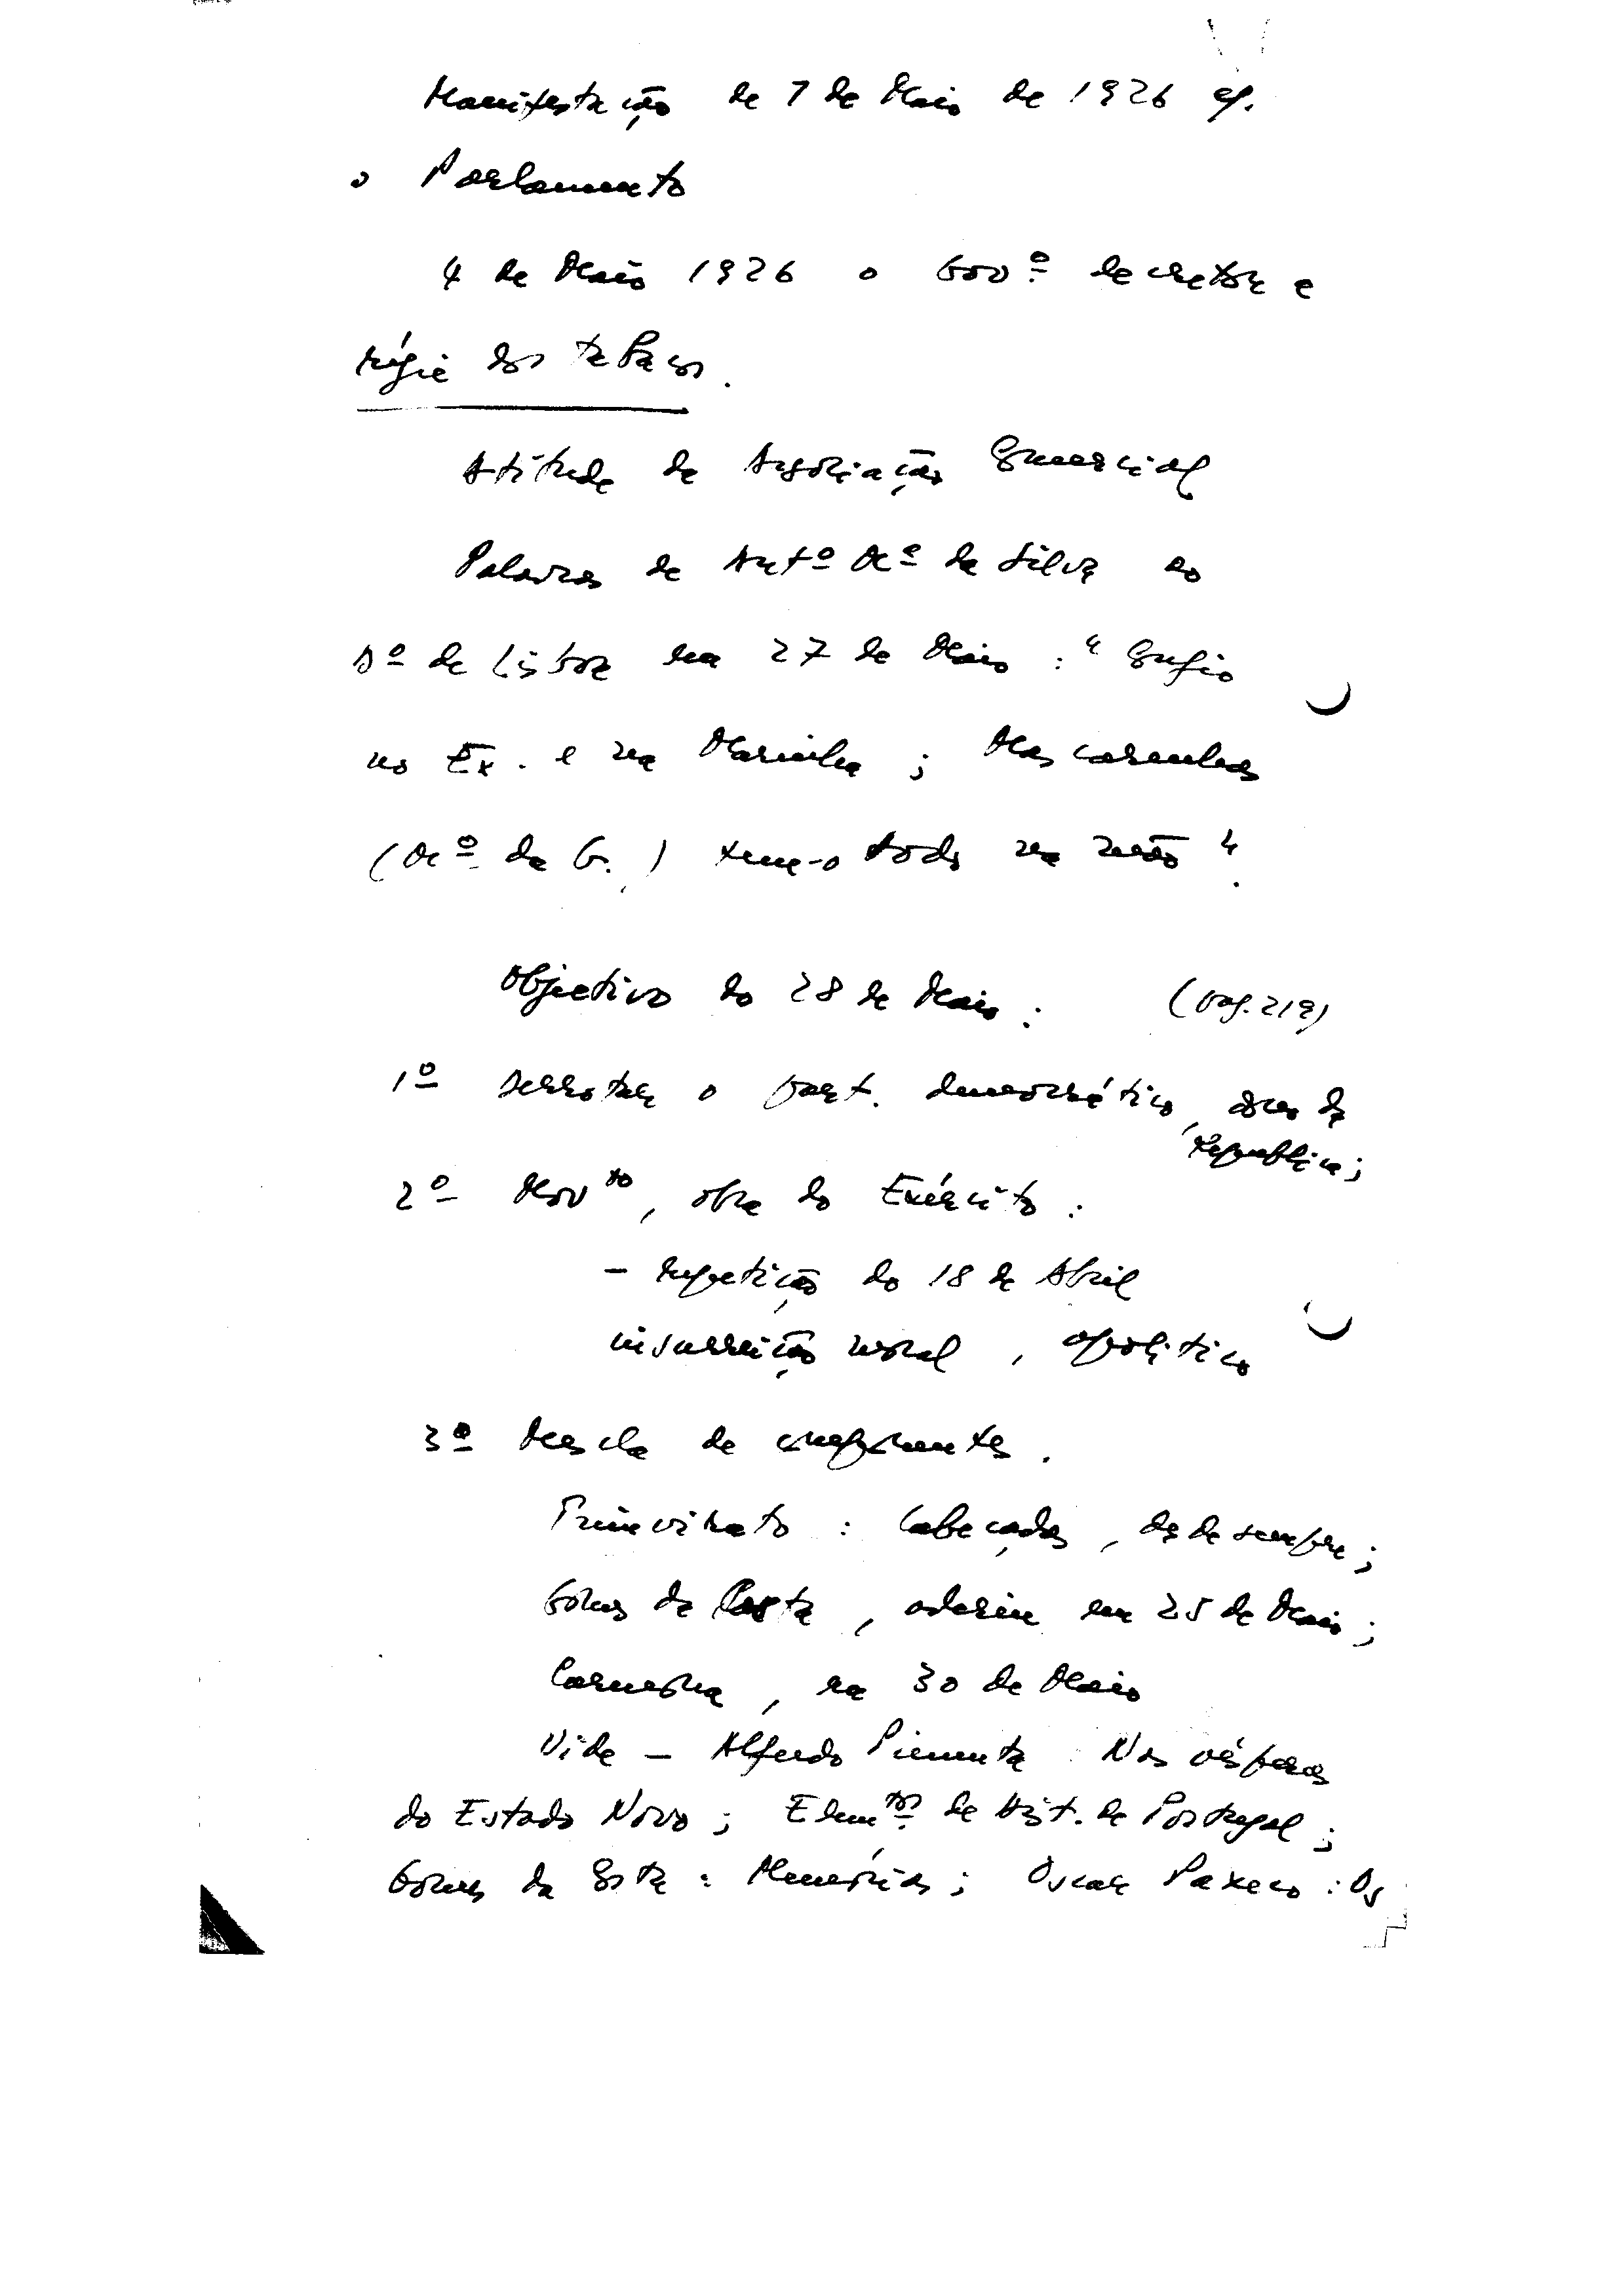 Manifestação de 7 de Maio de 1926 ef.
o Parlamento
4 de Maio 1926 o Govº decreta a
régie dos tabacos.
Atitude da Associação Comercial
Palavras de Antº Mª da Silva ao
Dº de Lisboa em 27 de Maio : "Confio
no Ex. e na Marinha ; Mascarenhas
(Mº da G.) tem-o todo na mão".
Objectivo do 28 de Maio : (pag. 219)
1º derrotar o part. democrático, dono da
república ;
2º Movto, obra do Exército :
- repetição do 18 de Abril
insurreição moral, apolitico
3º Mescla de componentes.
Triunvirato : Cabeçadas, desde sempre ;
Gomes da Costa, aderiu em 25 de Maio ;
Carmona, em 30 de Maio
Vide - Alfredo Pimenta : Nas vésperas
do Estado Novo ; Elemtos de Hist. de Portugal ;
Gomes da Costa : Memórias ; Oscar Paxeco : Os